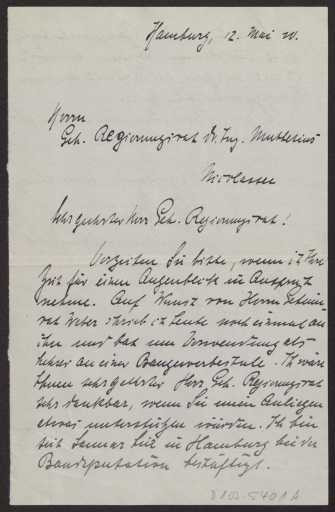 Hamburg, 12. Mai 20.
Herrn
Geh. Regierungsrat Dr. Ing. Muthesius
Nicolassee
Sehr geehrter Herr Geh. Regierungsrat!
Verzeihen Sie bitte, wenn ich Ihre
Zeit für einen Augenblick in Anspruch
nehme. Auf Wunsch von Herrn Geheim-
rat Weber schrieb ich heute noch einmal an
ihn und bat um Verwendung als
Lehrer an einer Baugewerbeschule. Ich wäre
Ihnen sehr geehrter Herr Geh. Regierungsrat
sehr dankbar, wenn Sie mein Anliegen
etwas unterstützen würden. Ich bin
seit Januar hier in Hamburg bei der
Baudeputation beschäftigt.